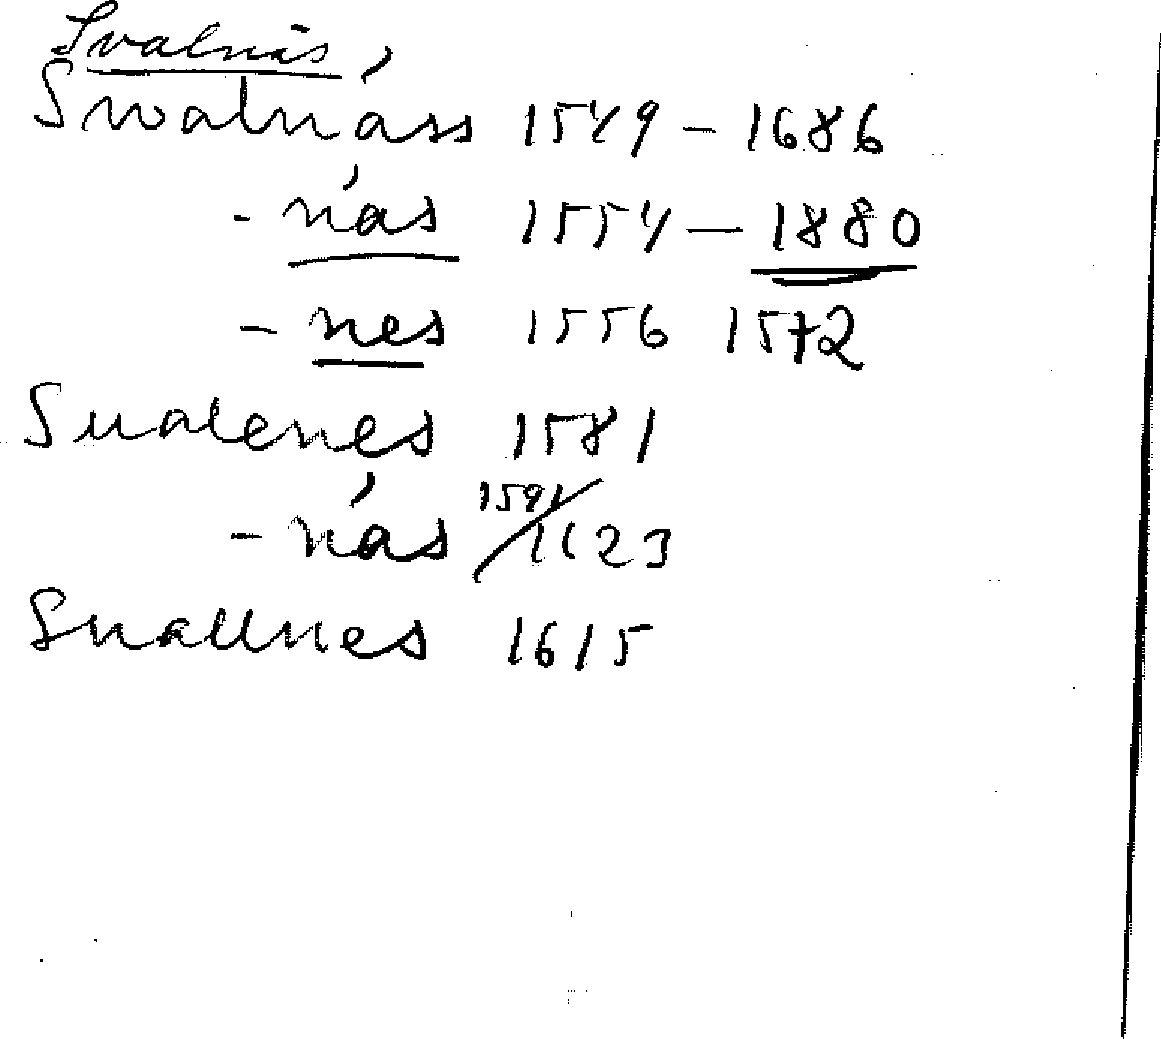 Svalnäs,
Swalnäss 1549 – 1686
- näs 1554 – 1880
- nes 1556 1572
Sualenes 1581
- näs 1591/1623
Suallnes 1615